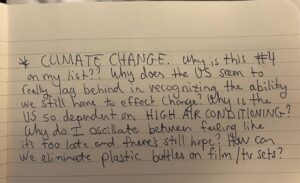 * CLIMATE CHANGE. Why is this #4
on my list?? Why does the US seem to
really lag behind in recognizing the ability
we still have to effect change? Why is the
US so dependent on HIGH AIR CONDITIONING?
Why do I oscillate between feeling like
it's too late and there's still hope? How can
we eliminate plastic bottles on film/tv sets?